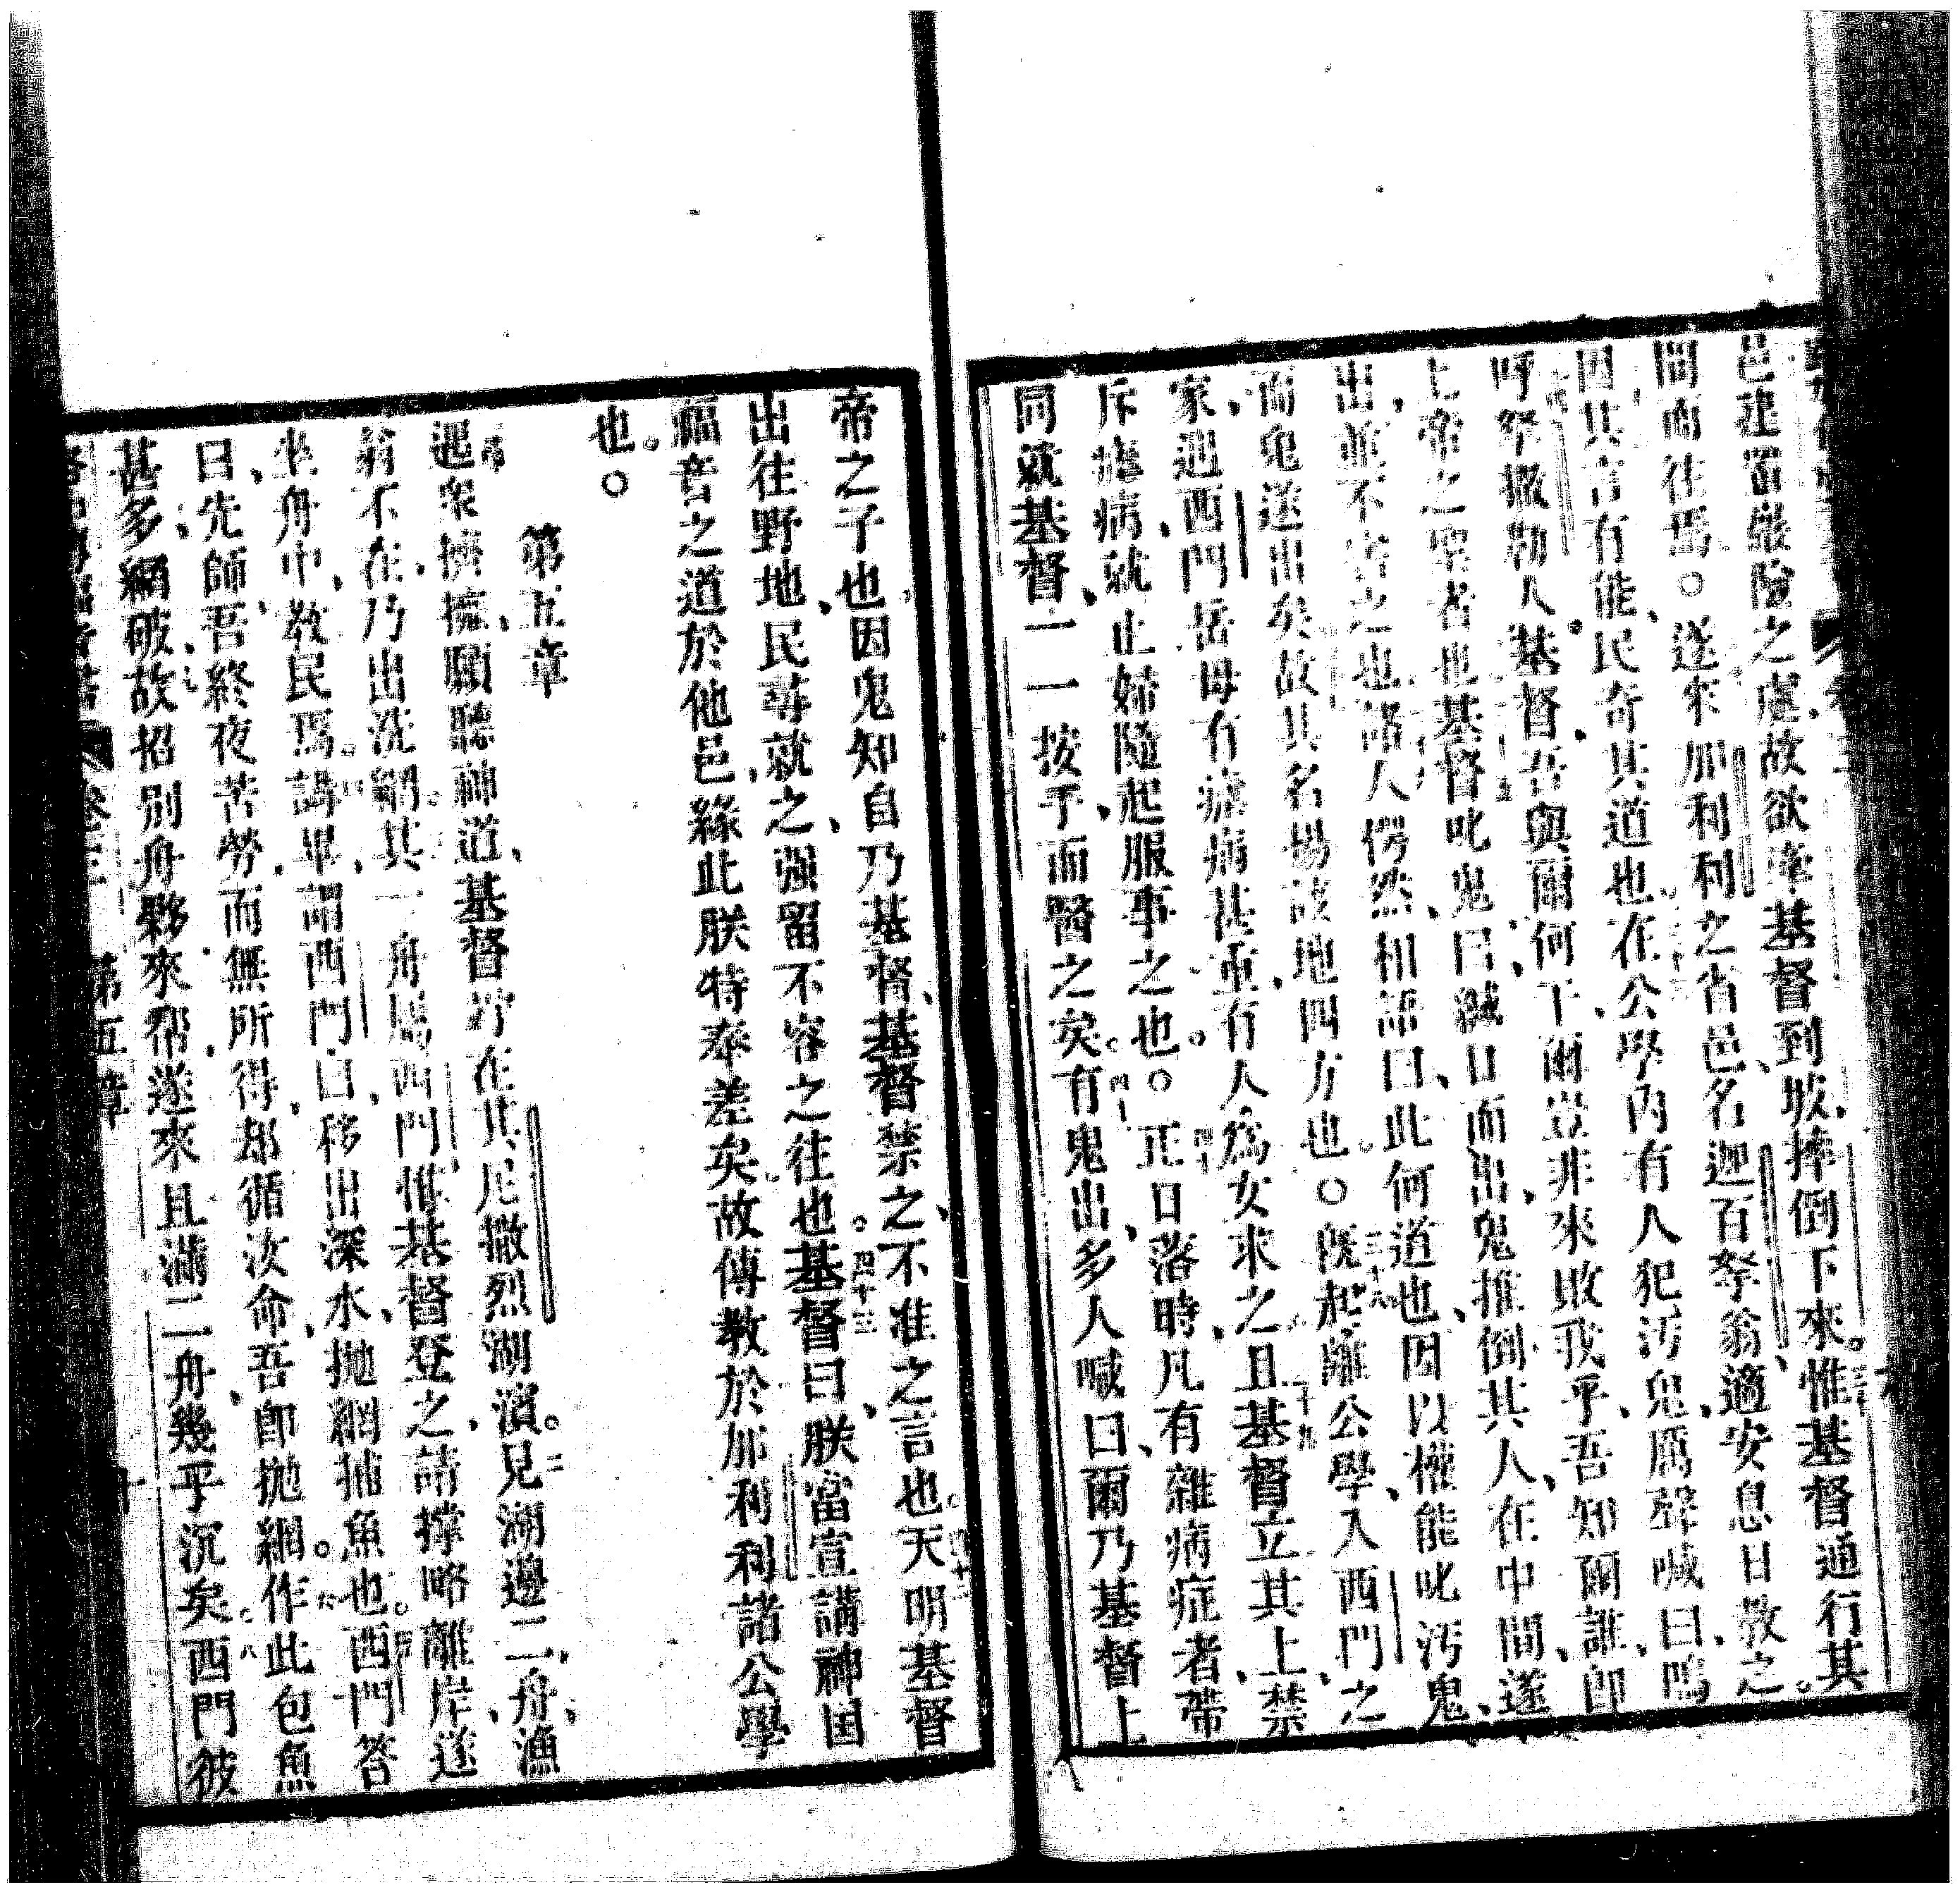 邑建當嚴險之處故欲牽基督到坡摔倒下來惟基督通行其
間而往焉○遂來加利利之省邑名迦百拏翁適安息日教之
因其言有能民奇其道也在公學內有人犯汚鬼厲聲喊曰嗚
呼拏撒勒人基督吾與爾何干爾豈非來敗我乎吾知爾誰卽
上帝之聖者也基督叱鬼曰緘口而出鬼推倒其人在中間遂
出並不害之也諸人愕然相語曰此何道也因以權能叱汚鬼
而鬼遂出矣故其名揚該地四方也○旣起離公學入西門之
家遇西門岳母有瘧病甚重有人爲女求之且基督立其上禁
斥瘧病就止婦隨起服事之也○正日落時凡有雜病症者帶
同就基督一一按手而醫之矣有鬼出多人喊曰爾乃基督上
帝之子也因鬼知自乃基督基督禁之不准之言也天明基督
出往野地民尋就之强留不容之往也基督曰朕當宣講神国
福音之道於他邑緣此朕特奉差矣故傳教於加利利諸公學
也○
第五章
遇衆擠擁願聽神道基督竚在其尼撒烈湖濱見湖邊二舟漁
翁不在乃出洗網其一舟屬西門惟基督登之請撑略離岸遂
坐舟中教民焉講畢謂西門曰移出深水抛網捕魚也西門答
曰先師吾終夜苦勞而無所得却循汝命吾卽抛網作此包魚
甚多網破故招別舟夥來帮遂來且滿二舟幾乎沉矣西門彼
第五章
十